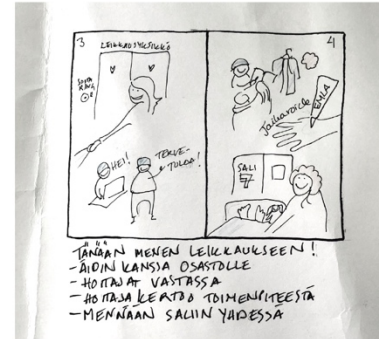 3
LEIKKAUSYKSIKKÖ
SOITA
HEI!
TERVE-
TULOA!
4
EMLA
SALI
7
TÄNÄÄN MENEN LEIKKAUKSEEN!
-ÄIDIN KANSSA OSASTOLLE
-HOITAJAT VASTASSA
-HOITAJA KERTOO TOIMENPITEESTÄ
-MENNÄÄN SALIIN YHDESSÄ